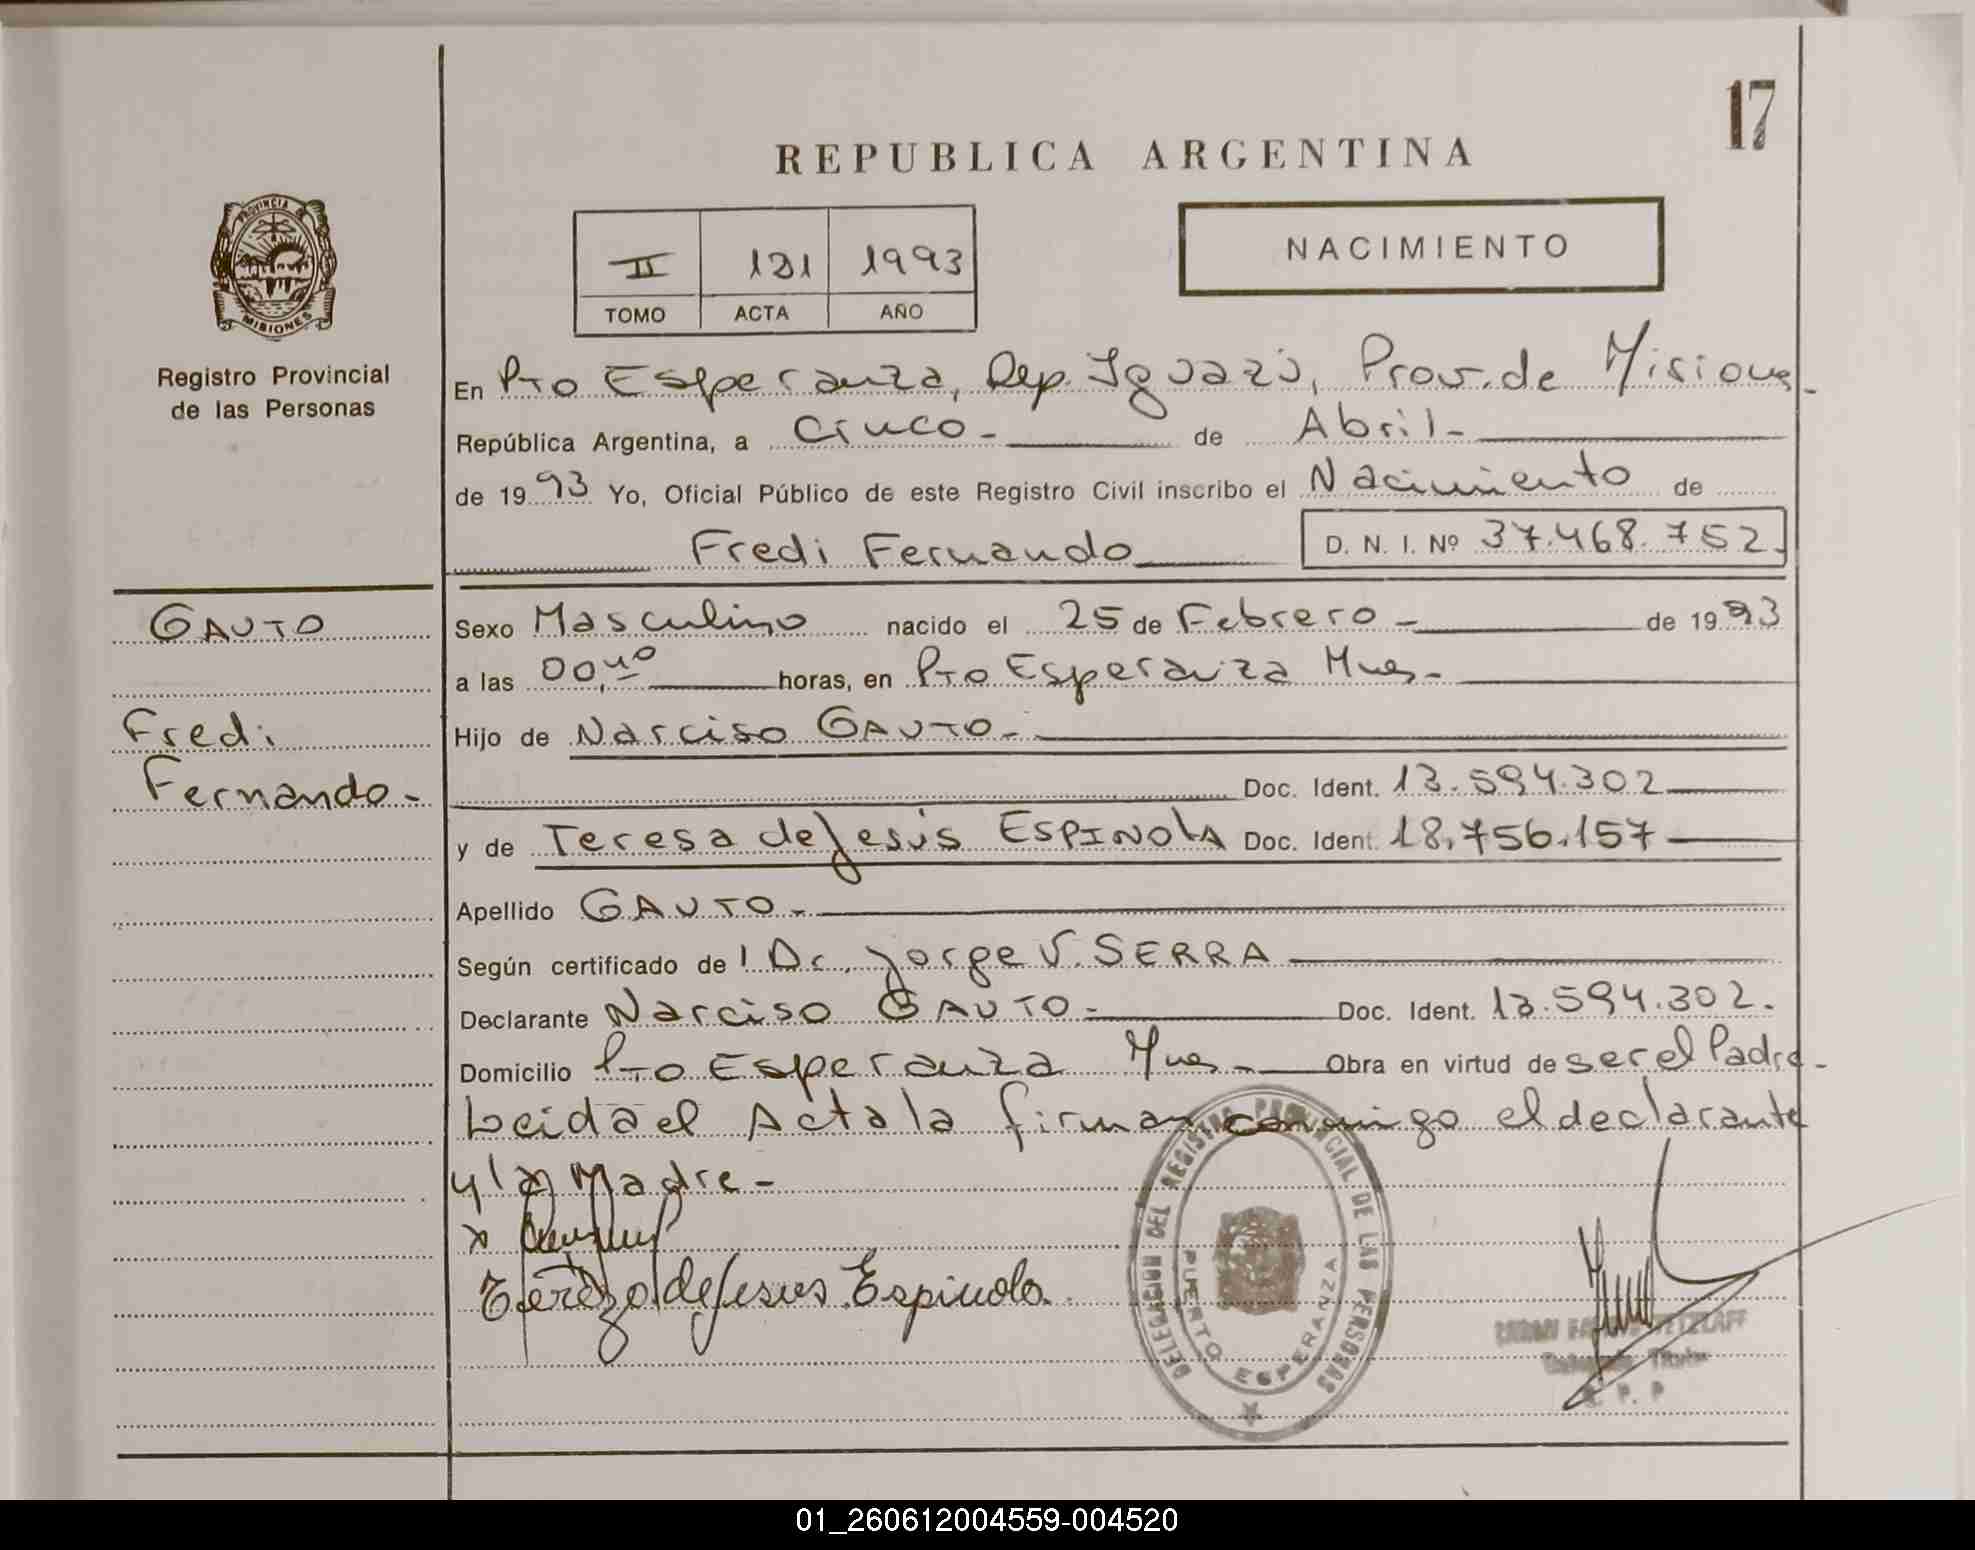 17
REPUBLICA ARGENTINA
PROVINCIA DE
MISIONES
Registro Provincial
de las Personas
II 121 1993
TOMO ACTA AÑO
NACIMIENTO
En Pto Esperanza, Dep. Iguazú, Prov. de Misiones-
República Argentina, a Cinco- de Abril-
de 1993 Yo, Oficial Público de este Registro Civil inscribo el Nacimiento de
Fredi Fernando D. N. I. Nº 37.468.752.
GAUTO
Sexo Masculino nacido el 25 de Febrero- de 1993
a las 00,40 horas, en Pto Esperanza Mnes-
Fredi
Hijo de Narciso GAUTO-
Fernando-
Doc. Ident. 13.594.302
y de Teresa de Jesús ESPINOLA Doc. Ident. 18.756.157
Apellido GAUTO-
Según certificado de l Dr. Jorge V. SERRA
Declarante Narciso GAUTO- Doc. Ident. 13.594.302.
Domicilio Pto Esperanza Mnes- Obra en virtud de ser el Padre-
Leida el Acta la firman conmigo el declarante
y la Madre-
x
Tereza de Jesus Espinola
DELEGACION DEL REGISTRO PROVINCIAL DE LAS PERSONAS
PUERTO ESPERANZA
Titular
P. P
01_260612004559-004520